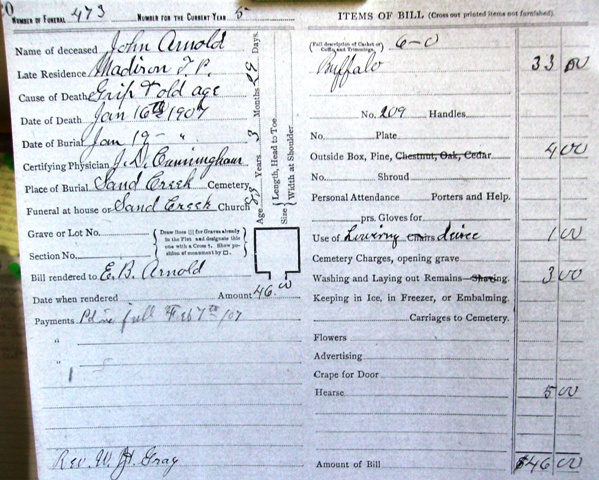 Number of Funeral 473 Number for the Current Year 5
Name of deceased John Arnold
Late Residence Madison T. P.
Cause of Death Grip & old age
Date of Death Jan 16th 1907
Date of Burial Jan 19 - "
Certifying Physician J. D. Cunningham
Place of Burial Sand Creek Cemetery
Funeral at house or Sand Creek Church
Age 83 Years 3 Months 29 Days.
Size { Length, Head to Toe
Width at Shoulder
Grave or Lot No.
Section No.
{ Draw lines for Graves already in the Plat and designate this one with a Cross †. Show position of monument by □. }
Bill rendered to E. B. Arnold
Date when rendered Amount 46.00
Payments Pd in full Feb 7th /07
"
"
Rev. W. H. Gray
ITEMS OF BILL (Cross out printed items not furnished)
(Full description of Casket or Coffin and Trimmings) 6-0
Buffalo 33 00
No. 209 Handles
No. Plate
Outside Box, Pine, Chestnut, Oak, Cedar 4 00
No. Shroud
Personal Attendance Porters and Help.
prs. Gloves for
Use of Lowering Chairs device 1 00
Cemetery Charges, opening grave
Washing and Laying out Remains Shaving. 3 00
Keeping in Ice, in Freezer, or Embalming.
Carriages to Cemetery.
Flowers
Advertising
Crape for Door
Hearse 5 00
Amount of Bill $46 00